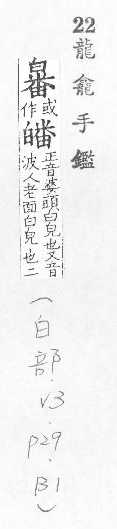 22 龍龕手鑑
或作皤正音婆頭白皃也又音
波人老面白皃也二
(白部.V3.P29.B1)